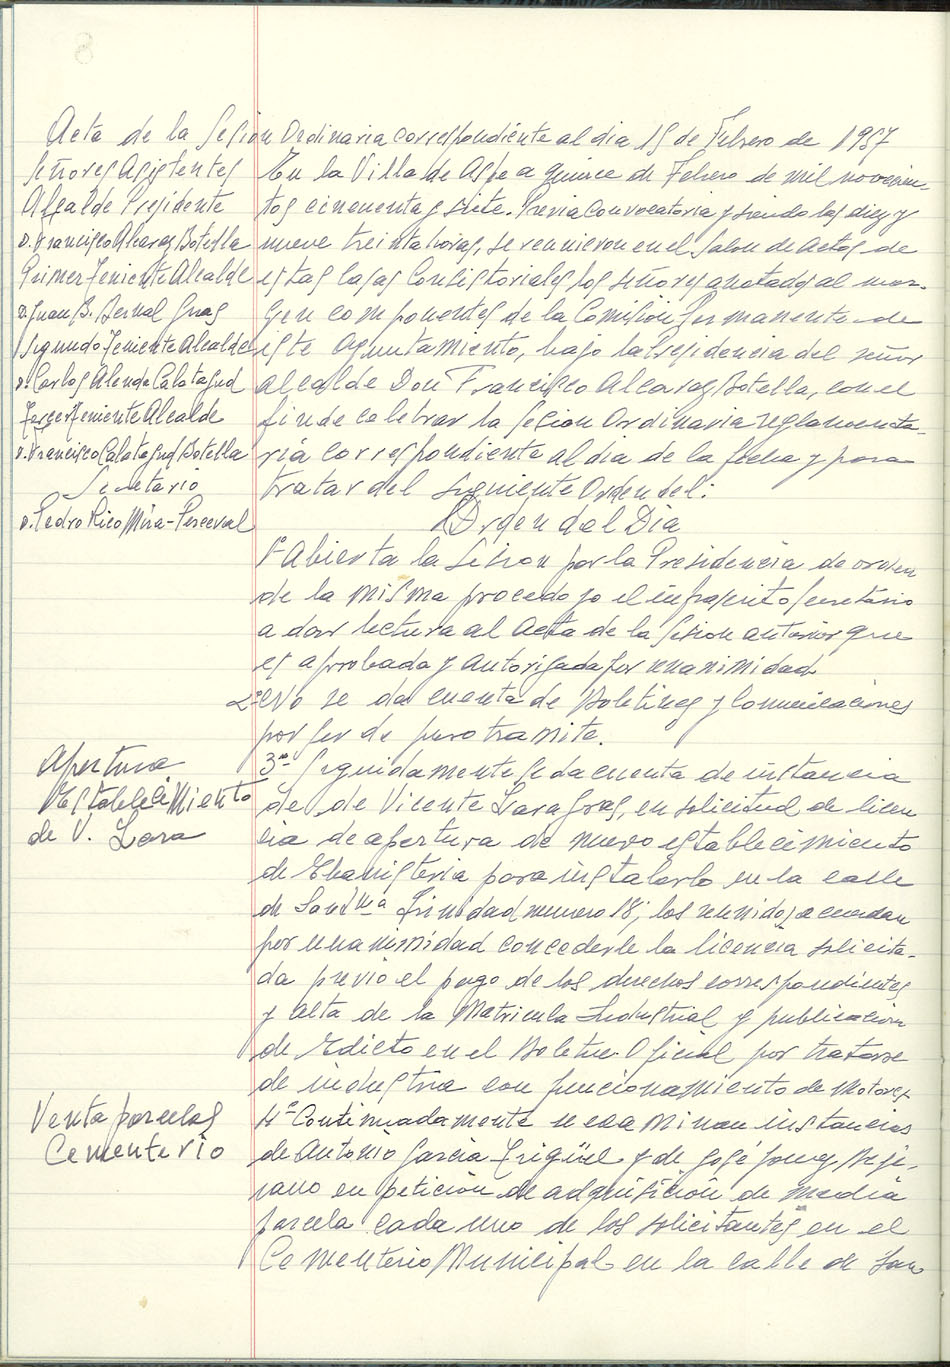 Acta de la Sesion Ordinaria correspondiente al dia 15 de Febrero de 1957
Señores Asistentes
Alcalde Presidente
D. Francisco Alcaraz Botella
Primer Teniente Alcalde
D. Juan B. Bernal Gras
Segundo Teniente Alcalde
D. Carlos Alenda Calatayud
Tercer Teniente Alcalde
D. Francisco Calatayud Botella
Secretario
D. Pedro Rico Mira-Perceval
En la Villa de Aspe a quince de Febrero de mil novecien-
tos cincuenta y siete. Previa convocatoria y siendo las diez y
nueve treinta horas, se reunieron en el Salon de actos de
estas Casas Consistoriales los señores anotados al mar-
gen componentes de la Comision Permanente de
este Ayuntamiento, bajo la Presidencia del señor
Alcalde Don Francisco Alcaraz Botella, con el
fin de celebrar la Sesion Ordinaria reglamenta-
ria correspondiente al dia de la fecha y para
tratar del siguiente Orden del:
Orden del Dia
1º Abierta la Sesion por la Presidencia de orden
de la misma procedo yo el infrascrito Secretario
a dar lectura al Acta de la Sesion anterior que
es aprobada y autorizada por unanimidad
2º No se da cuenta de Boletines y Comunicaciones
por ser de puro tramite.
Apertura
Establecimiento
de V. Lara
3º Seguidamente se da cuenta de instancia
de de Vicente Lara Gras, en solicitud de licen
cia de apertura de nuevo establecimiento
de Ebanisteria para instalarlo en la calle
de Santma Trinidad numero 18; los reunidos acuerdan
por unanimidad concederle la licencia solicita-
da previo el pago de los derechos correspondientes
y alta de la Matricula Industrial y publicacion
de Edicto en el Boletin Oficial por tratarse
de industria con funcionamiento de motores
Venta parcelas
Cementerio
4º Continuadamente se examinan instancias
de Antonio Garcia Irigüel y de José Gomez Beje-
rano en peticion de adquisición de media
parcela cada uno de los solicitantes en el
Cementerio Municipal en la calle de San